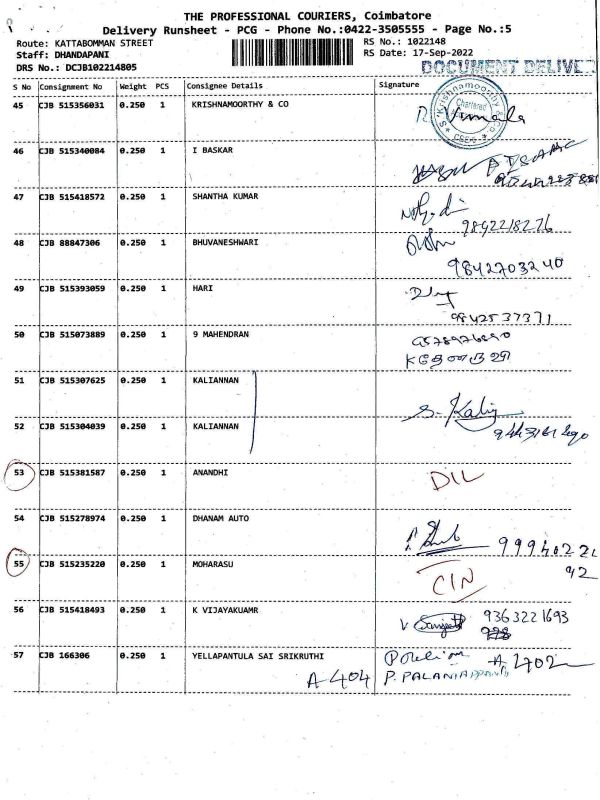 THE PROFESSIONAL COURIERS, Coimbatore
Delivery Runsheet - PCG - Phone No.:0422-3505555 - Page No.:5
Route: KATTABOMMAN STREET RS No.: 1022148
Staff: DHANDAPANI RS Date: 17-Sep-2022
DRS No.: DCJB102214805 DOCUMENT DELIVE
S No Consignment No Weight PCS Consignee Details Signature
45 CJB 515356031 0.250 1 KRISHNAMOORTHY & CO
Chartered
46 CJB 515340084 0.250 1 I BASKAR
47 CJB 515418572 0.250 1 SHANTHA KUMAR
9892218276
48 CJB 88847306 0.250 1 BHUVANESHWARI
9842703240
49 CJB 515393059 0.250 1 HARI
9842537371
50 CJB 515073889 0.250 1 9 MAHENDRAN
51 CJB 515307625 0.250 1 KALIANNAN
52 CJB 515304039 0.250 1 KALIANNAN
53 CJB 515381587 0.250 1 ANANDHI DIL
54 CJB 515278974 0.250 1 DHANAM AUTO
99940221
92
55 CJB 515235220 0.250 1 MOHARASU CIN
56 CJB 515418493 0.250 1 K VIJAYAKUAMR 9363221693
57 CJB 166306 0.250 1 YELLAPANTULA SAI SRIKRUTHI A 402
A-404 P. PALANIAPPAN